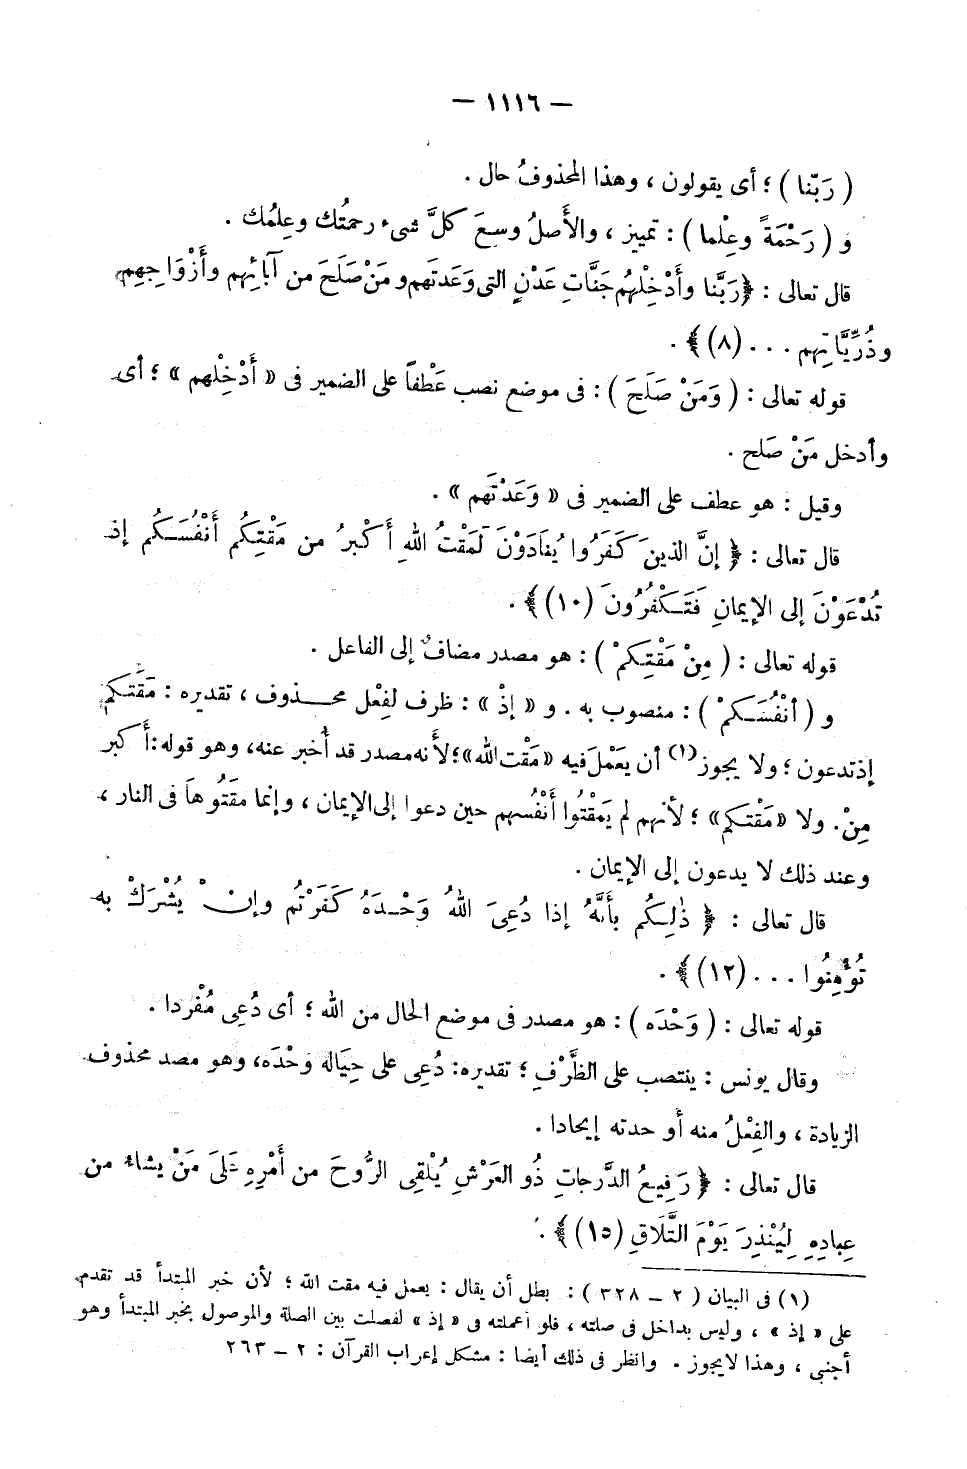 — ١١١٦ —
( رَبّنا ) ؛ أى يقولون ، وهذا المحذوفُ حال .
و ( رَحْمَةً وعِلْما ) : تمييز ، والأَصلُ وسعَ كلَّ شىء رحمتُك وعِلمُك .
قال تعالى : ﴿ رَبَّنا وأَدْخِلْهُم جَنَّاتِ عَدْنٍ التى وَعَدتَهم ومَنْ صَلَحَ من آبائِهم وأَزْوَاجِهم
وذُرِّيَّاتِهم . . . (٨) ﴾ .
قوله تعالى : ( وَمَنْ صَلَحَ ) : فى موضع نصب عَطْفاً على الضمير فى « أَدْخِلْهم » ؛ أى
وأدخل مَنْ صَلح .
وقيل : هو عطف على الضمير فى « وَعَدْتَهم » .
قال تعالى : ﴿ إنَّ الذينَ كَفَرُوا يُنَادَوْنَ لَمَقْتُ اللهِ أَكْبرُ من مَقْتِكُم أَنْفُسَكُم إذ
تُدْعَوْنَ إلى الإيمانِ فَتَكْفُرُونَ (١٠) ﴾ .
قوله تعالى : ( مِنْ مَقْتِكمْ ) : هو مصدر مضافٌ إلى الفاعل .
و ( أنْفُسَكمْ ) : منصوب به . و « إذْ » : ظرف لفِعْل محذوف ، تقديره : مَقَتَكم
إذ تدعون ؛ ولا يجوز(١) أن يَعْمَلَ فيه « مَقْت الله » ؛ لأنه مصدر قد أُخبر عنه ، وهو قوله : أَكبر
مِنْ . ولا « مَقْتكم » ؛ لأنهم لم يَمقْتُوا أنْفُسهم حين دعوا إلى الإيمان ، وإنما مقَتُوهاَ فى النار ،
وعند ذلك لا يدعون إلى الإيمان .
قال تعالى : ﴿ ذٰلِكُم بأَنَّهُ إذا دُعِىَ اللهُ وَحْدَهُ كَفَرْتُم وإنْ يُشْرَكْ به
تُؤْمِنُوا . . . (١٢) ﴾ .
قوله تعالى : ( وَحْدَه ) : هو مصدر فى موضع الحال من الله ؛ أى دُعِى مُفْردا .
وقال يونس : ينتصب على الظَّرْفِ ؛ تقديره : دُعِى على حِيَاله وَحْدَه ، وهو مصد محذوف
الزيادة ، والفِعْلُ منه أو حدته إيحادا .
قال تعالى : ﴿ رَفِيعُ الدَّرجاتِ ذُو العَرْشِ يُلْقِى الرُّوحَ من أَمْرِهِ عَلىَ مَنْ يشاءُ من
عِبادِهِ لِيُنْذِرَ يَوْمَ التَّلَاقِ (١٥) ﴾ .
(١) فى البيان ( ٢ - ٣٢٨ ) : بطل أن يقال : يعمل فيه مقت الله ؛ لأن خبر المبتدأ قد تقدم
على « إذ » ، وليس بداخل فى صلته ، فلو أعملته فى « إذ » لفصلت بين الصلة والموصول بخبر المبتدأ وهو
أجنبى ، وهذا لا يجوز . وانظر فى ذلك أيضا : مشكل إعراب القرآن : ٢ - ٢٦٣